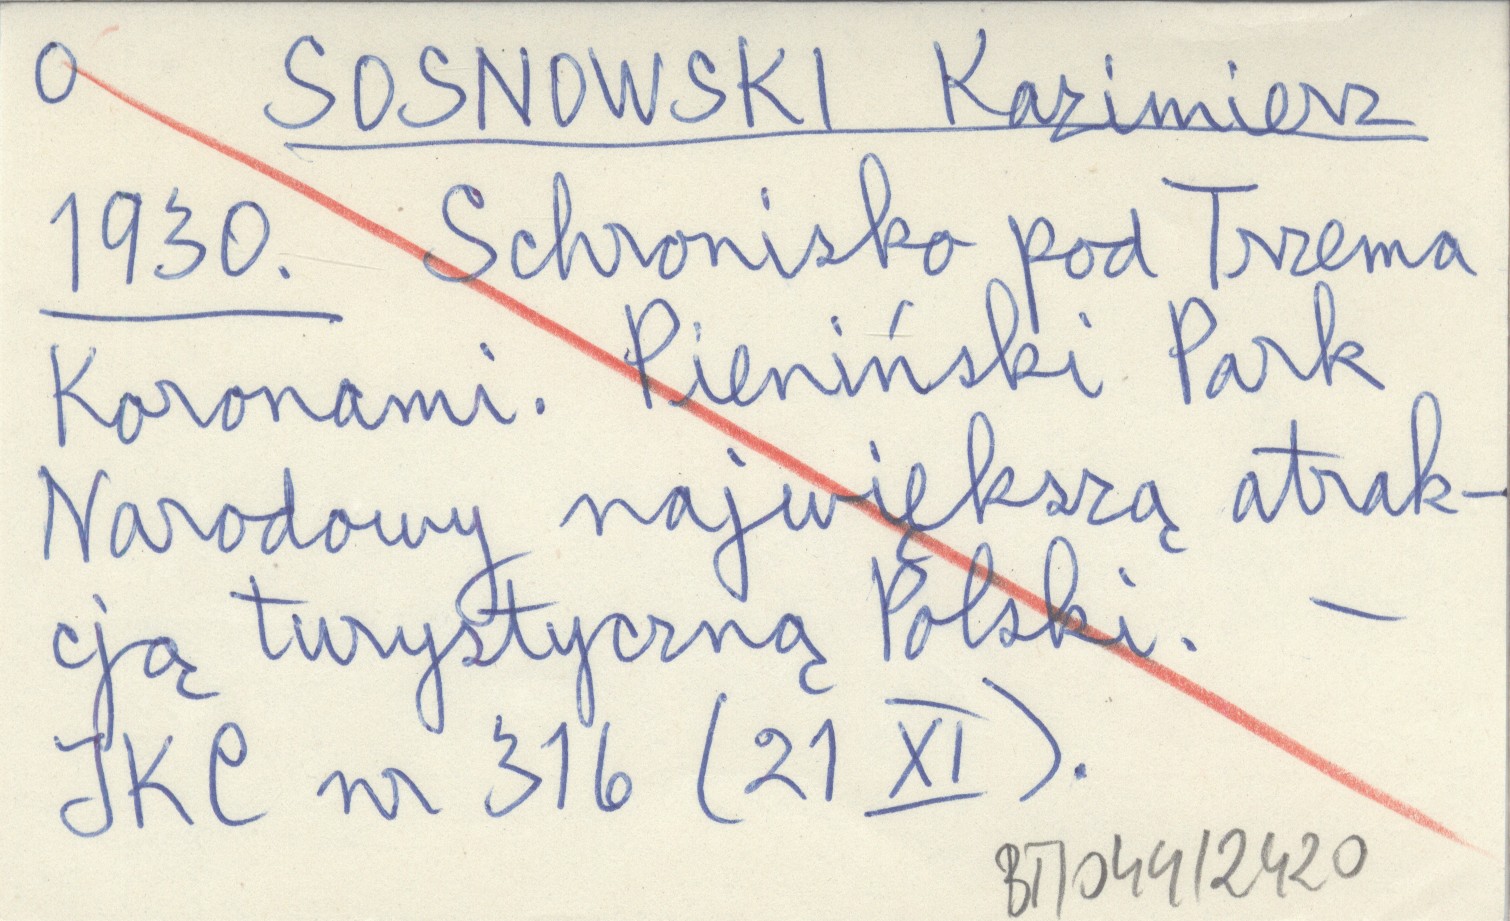 O SOSNOWSKI Kazimierz
1930. Schronisko pod Trzema
Koronami. Pieniński Park
Narodowy największą atrak-
cją turystyczną Polski. —
IKC nr 316 (21 XI).